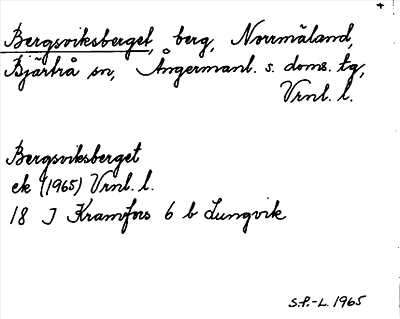 +
Bergsviksberget, berg, Norrmäland,
Bjärtrå sn, Ångermanl. s. doms. tg,
Vrnl. l.
Bergsviksberget
ek (1965) Vrnl. l.
18 J Kramfors 6 b Lungvik
S.P.-L. 1965